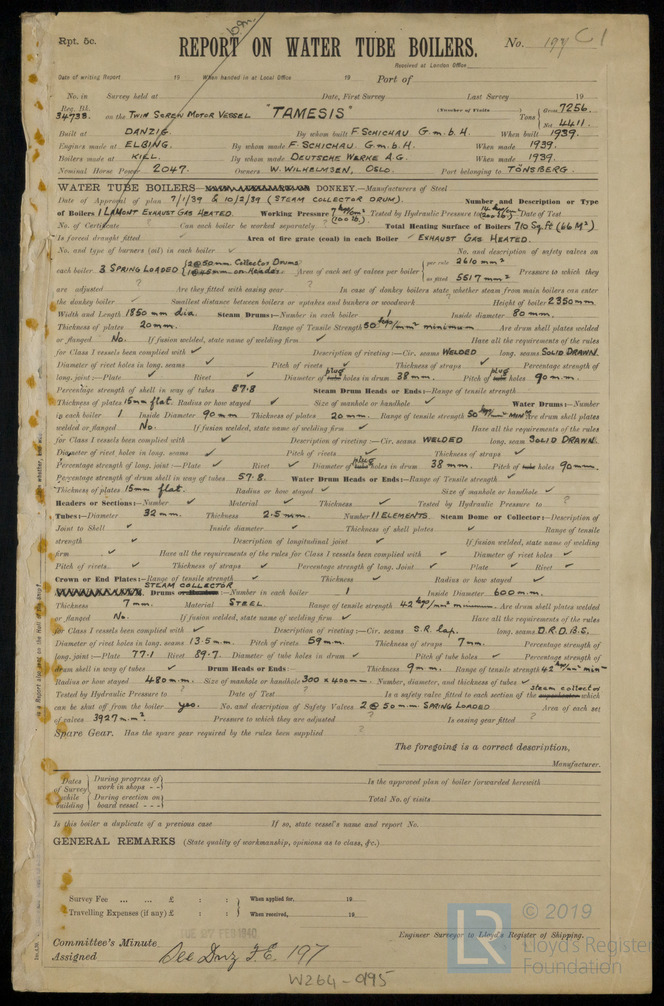 Rpt. 5c.
REPORT ON WATER TUBE BOILERS.
No. 197 C1
Received at London Office
Date of writing Report 19 When handed in at Local Office 19 Port of
No. in Survey held at Date, First Survey Last Survey 19
Reg. Bk. (Number of Visits)
34738. on the TWIN SCREW MOTOR VESSEL "TAMESIS" Tons { Gross 7256. Net 4411.
Built at DANZIG. By whom built F. SCHICHAU G.m.b.H. When built 1939.
Engines made at ELBING. By whom made F. SCHICHAU G.m.b.H. When made 1939.
Boilers made at KIEL. By whom made DEUTSCHE WERKE A.G. When made 1939.
Nominal Horse Power 2047. Owners W. WILHELMSEN, OSLO. Port belonging to TÖNSBERG.
WATER TUBE BOILERS DONKEY.—Manufacturers of Steel
Date of Approval of plan 7/1/39 & 10/2/39 (STEAM COLLECTOR DRUM). Number and Description or Type
of Boilers 1 LAMONT EXHAUST GAS HEATED. Working Pressure 7 kg/cm² (100 lb.) Tested by Hydraulic Pressure to 14 kg/cm² (200 lb.) Date of Test
No. of Certificate Can each boiler be worked separately ? Total Heating Surface of Boilers 710 Sq. ft (66 M²)
Is forced draught fitted Area of fire grate (coal) in each Boiler ✓ EXHAUST GAS HEATED.
No. and type of burners (oil) in each boiler ✓ No. and description of safety valves on
each boiler 3 SPRING LOADED { 2 @ 50mm. Collector Drums 1 @ 45mm on Header Area of each set of valves per boiler { per rule 2610 mm² as fitted 5517 mm² Pressure to which they
are adjusted ? Are they fitted with easing gear ? In case of donkey boilers state whether steam from main boilers can enter
the donkey boiler ✓ Smallest distance between boilers or uptakes and bunkers or woodwork Height of boiler 2350mm
Width and Length 1850 mm dia. Steam Drums:—Number in each boiler 1 Inside diameter 80 mm.
Thickness of plates 20mm. Range of Tensile Strength 50 kgs/mm² minimum. Are drum shell plates welded
or flanged No. If fusion welded, state name of welding firm ✓ Have all the requirements of the rules
for Class I vessels been complied with ✓ Description of riveting:—Cir. seams WELDED long. seams SOLID DRAWN.
Diameter of rivet holes in long. seams ✓ Pitch of rivets ✓ Thickness of straps ✓ Percentage strength of
long. joint:—Plate ✓ Rivet ✓ Diameter of plug holes in drum 38mm. Pitch of plug holes 90mm.
Percentage strength of shell in way of tubes 57.8 Steam Drum Heads or Ends:—Range of tensile strength
Thickness of plates 15mm flat. Radius or how stayed ✓ Size of manhole or handhole ✓ Water Drums:—Number
in each boiler 1 Inside Diameter 90mm Thickness of plates 20mm. Range of tensile strength 50 kgs/mm² MINM. Are drum shell plates
welded or flanged No. If fusion welded, state name of welding firm ✓ Have all the requirements of the rules
for Class I vessels been complied with ✓ Description of riveting:—Cir. seams WELDED long. seam SOLID DRAWN.
Diameter of rivet holes in long. seams ✓ Pitch of rivets ✓ Thickness of straps ✓
Percentage strength of long. joint:—Plate ✓ Rivet ✓ Diameter of plug holes in drum 38mm. Pitch of holes 90mm.
Percentage strength of drum shell in way of tubes 57.8. Water Drum Heads or Ends:—Range of Tensile strength ✓
Thickness of plates 15mm flat. Radius or how stayed ✓ Size of manhole or handhole ✓
Headers or Sections:—Number ✓ Material ✓ Thickness ✓ Tested by Hydraulic Pressure to ?
Tubes:—Diameter 32mm. Thickness 2.5mm. Number 11 ELEMENTS. Steam Dome or Collector:—Description of
Joint to Shell ✓ Inside diameter ✓ Thickness of shell plates ✓ Range of tensile
strength ✓ Description of longitudinal joint ✓ If fusion welded, state name of welding
firm ✓ Have all the requirements of the rules for Class I vessels been complied with ✓ Diameter of rivet holes ✓
Pitch of rivets. ✓ Thickness of straps ✓ Percentage strength of long. Joint ✓ Plate ✓ Rivet ✓
Crown or End Plates:—Range of tensile strength ✓ Thickness ✓ Radius or how stayed ✓
STEAM COLLECTOR Drums :—Number in each boiler 1 Inside Diameter 600mm.
Thickness 7mm. Material STEEL. Range of tensile strength 42 kgs/mm² minimum. Are drum shell plates welded
or flanged No. If fusion welded, state name of welding firm ✓ Have all the requirements of the rules
for Class I vessels been complied with ✓ Description of riveting:—Cir. seams S.R. Lap. long. seams D.R.D.B.S.
Diameter of rivet holes in long. seams 13.5mm. Pitch of rivets 59mm. Thickness of straps 7mm. Percentage strength of
long. joint:—Plate 77.1 Rivet 89.7. Diameter of tube holes in drum ✓ Pitch of tube holes ✓ Percentage strength of
drum shell in way of tubes ✓ Drum Heads or Ends:— Thickness 9mm. Range of tensile strength 42 kgs/mm² minm
Radius or how stayed 480mm. Size of manhole or handhole 300 x 400mm. Number, diameter, and thickness of tubes ✓
Tested by Hydraulic Pressure to ? Date of Test ? Is a safety valve fitted to each section of the steam collector which
can be shut off from the boiler yes. No. and description of Safety Valves 2 @ 50mm. SPRING LOADED Area of each set
of valves 3927 m.m². Pressure to which they are adjusted ? Is easing gear fitted ?
Spare Gear. Has the spare gear required by the rules been supplied ?
The foregoing is a correct description,
Manufacturer.
Dates of Survey while building { During progress of work in shops - - During erection on board vessel - - - } Is the approved plan of boiler forwarded herewith
Total No. of visits
Is this boiler a duplicate of a previous case If so, state vessel's name and report No.
GENERAL REMARKS (State quality of workmanship, opinions as to class, &c.)
Survey Fee ... ... £ : : When applied for, 19
Travelling Expenses (if any) £ : : When received, 19
TUE 27 FEB 1940
Engineer Surveyor to Lloyd's Register of Shipping.
Committee's Minute
Assigned See Dnz F.E. 197
W264-0195
LR © 2019
Lloyd's Register
Foundation